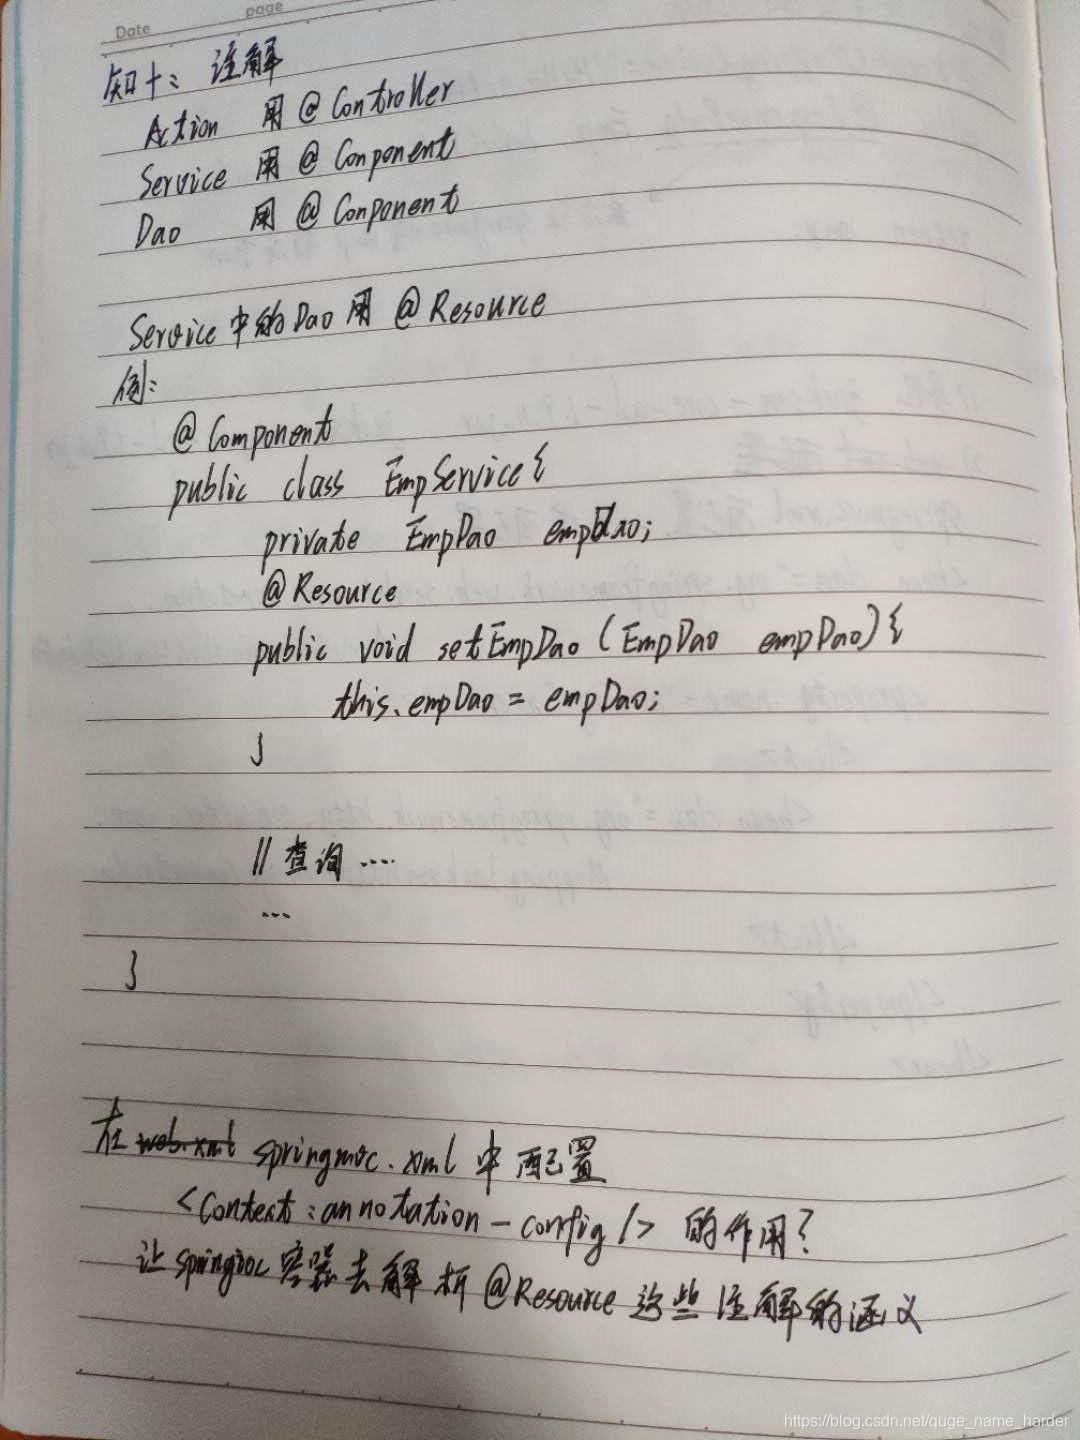 Date
page
知十：注解
Action 用 @Controller
Service 用 @Conponent
Dao 用 @Conponent
Service中的Dao用 @Resource
例：
@Component
public class EmpService{
private EmpDao empDao;
@Resource
public void setEmpDao (EmpDao empDao){
this.empDao = empDao;
}
//查询 ....
...
}
在 web.xml springmvc.xml 中配置
<Context:annotation-config/> 的作用?
让springioc容器去解析@Resource这些注解的涵义
https://blog.csdn.net/quge_name_harder